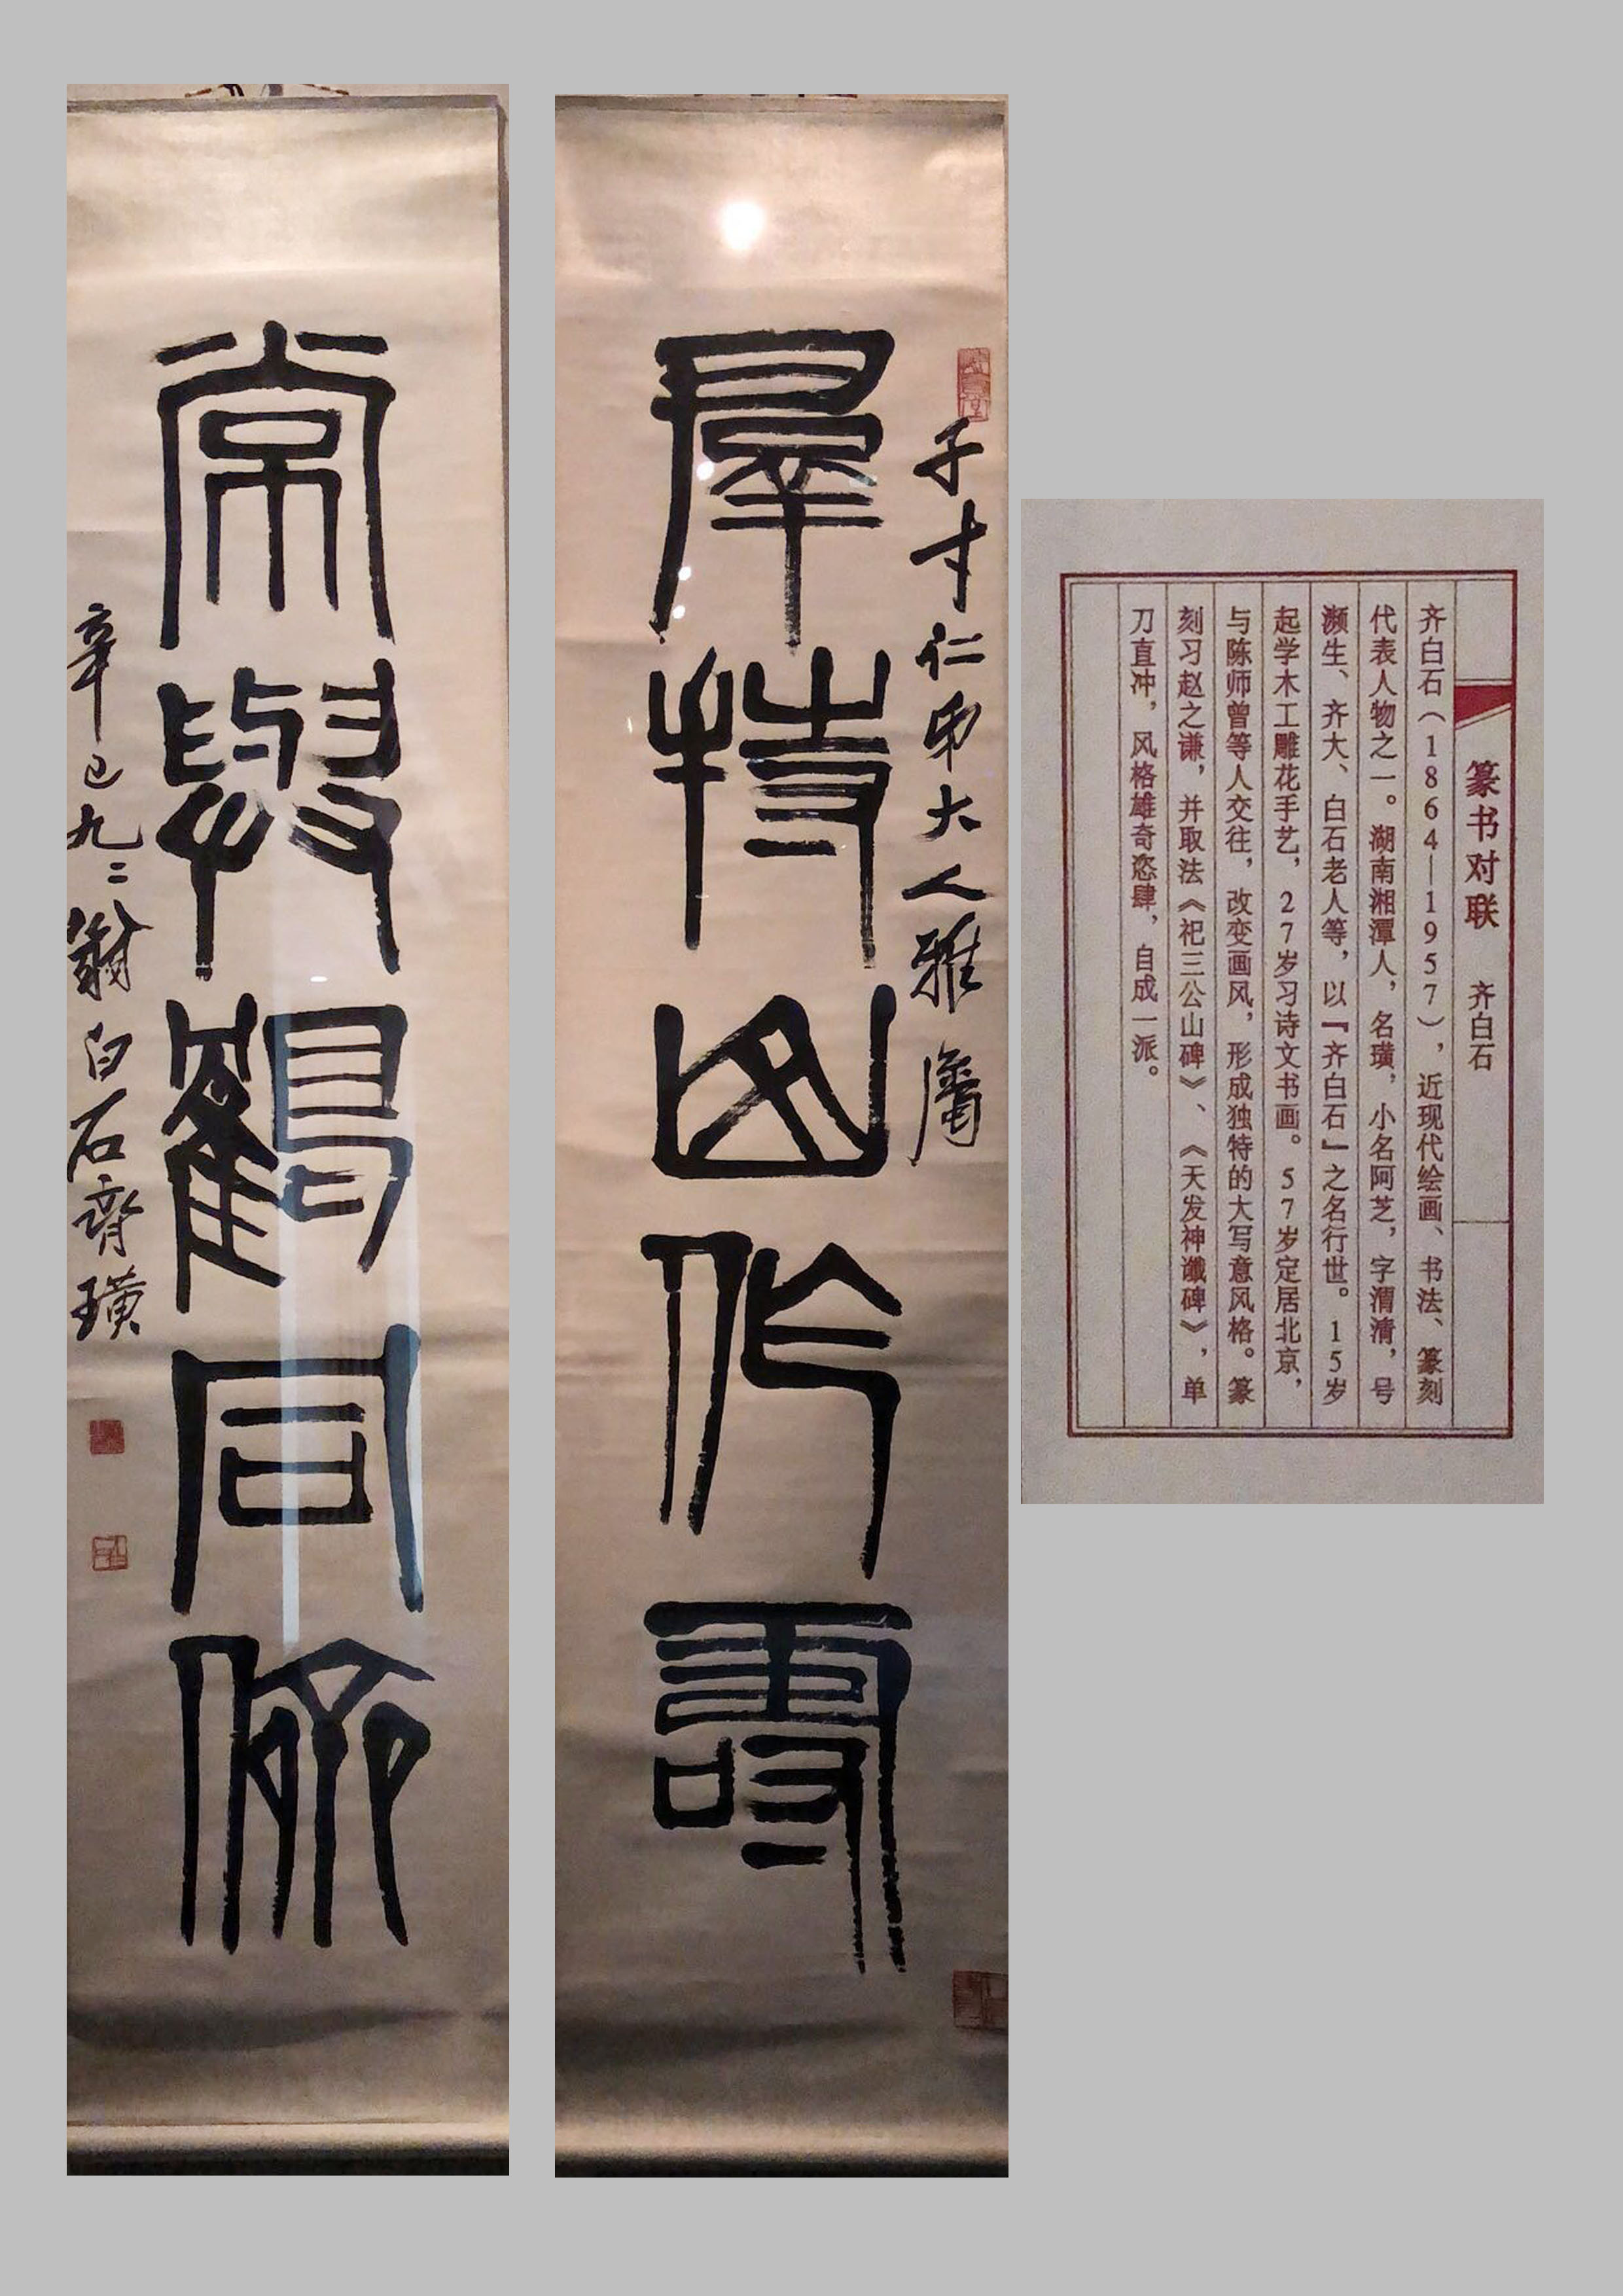 篆书对联 齐白石
齐白石（1864—1957），近现代绘画、书法、篆刻
代表人物之一。湖南湘潭人，名璜，小名阿芝，字渭清，号
濒生、齐大、白石老人等，以『齐白石』之名行世。15岁
起学木工雕花手艺，27岁习诗文书画。57岁定居北京，
与陈师曾等人交往，改变画风，形成独特的大写意风格。篆
刻习赵之谦，并取法《祀三公山碑》、《天发神谶碑》，单
刀直冲，风格雄奇恣肆，自成一派。
子才仁弟大人雅屬
羣持山作壽
常與鶴同儕
辛巳九〻翁白石齊璜